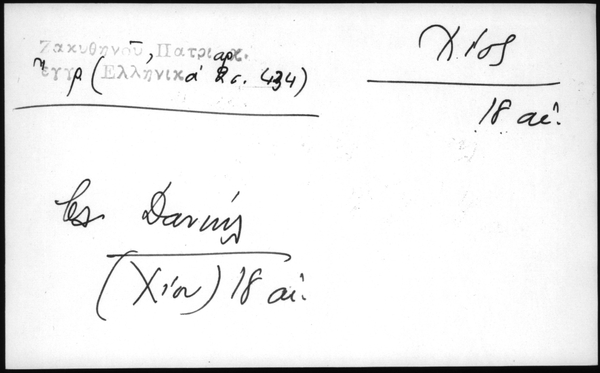 Ζακυθηνού, Πατριαρχ.
έγγρ( Ἑλληνικά 2 σ. 434)
Χίος
18 αἰ.
Δανιήλ
(Χίου) 18 αἰ.